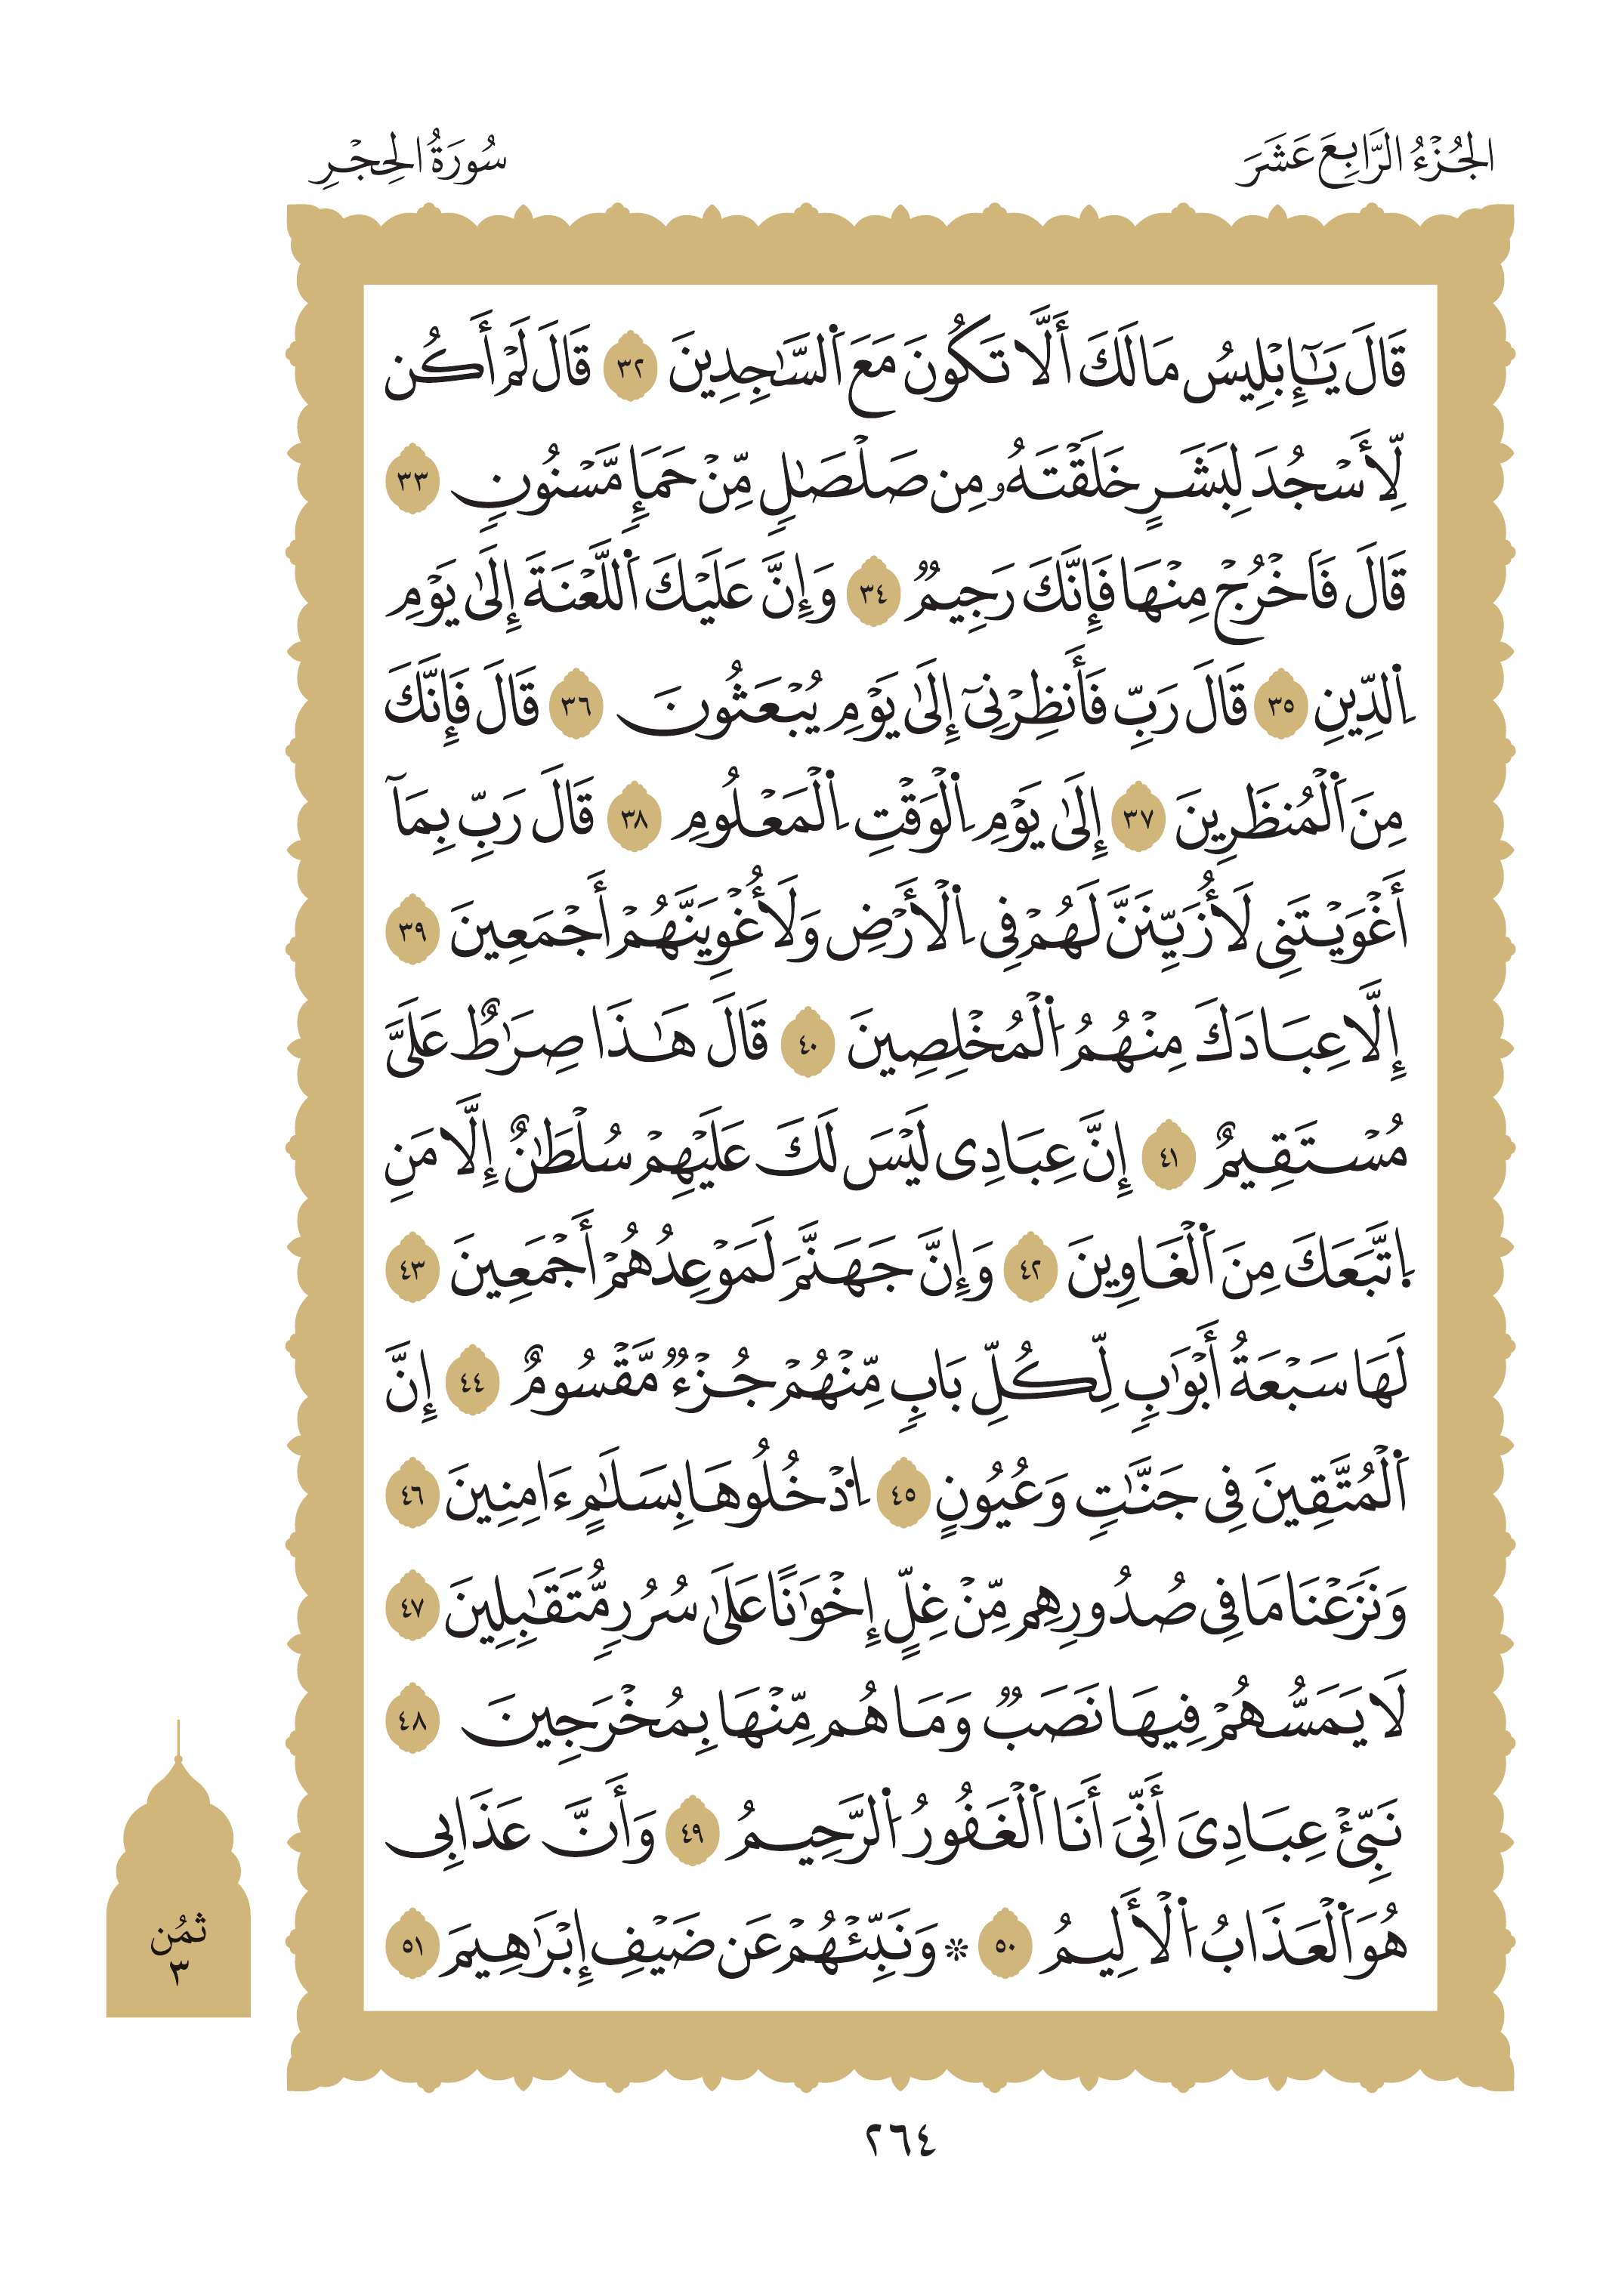 الجُزْءُ الرَّابِعَ عَشَرَ
سُورَةُ الحِجْرِ
قَالَ يَٰٓإِبْلِيسُ مَا لَكَ أَلَّا تَكُونَ مَعَ اَ۬لسَّٰجِدِينَ ٣٢ قَالَ لَمْ أَكُن
لِّأَسْجُدَ لِبَشَرٍ خَلَقْتَهُۥ مِن صَلْصَٰلٍ مِّنْ حَمَإٍ مَّسْنُونٍ ٣٣
قَالَ فَاَخْرُجْ مِنْهَا فَإِنَّكَ رَجِيمٌ ٣٤ وَإِنَّ عَلَيْكَ اَ۬للَّعْنَةَ إِلَىٰ يَوْمِ
اِ۬لدِّينِ ٣٥ قَالَ رَبِّ فَأَنظِرْنِىٓ إِلَىٰ يَوْمِ يُبْعَثُونَ ٣٦ قَالَ فَإِنَّكَ
مِنَ اَ۬لْمُنظَرِينَ ٣٧ إِلَىٰ يَوْمِ اِ۬لْوَقْتِ اِ۬لْمَعْلُومِ ٣٨ قَالَ رَبِّ بِمَآ
أَغْوَيْتَنِى لَأُزَيِّنَنَّ لَهُمْ فِى اِ۬لْأَرْضِ وَلَأُغْوِيَنَّهُمْ أَجْمَعِينَ ٣٩
إِلَّا عِبَادَكَ مِنْهُمُ اُ۬لْمُخْلِصِينَ ٤٠ قَالَ هَٰذَا صِرَٰطٌ عَلَىَّ
مُسْتَقِيمٌ ٤١ إِنَّ عِبَادِى لَيْسَ لَكَ عَلَيْهِمْ سُلْطَٰنٌ إِلَّا مَنِ
اِ۪تَّبَعَكَ مِنَ اَ۬لْغَاوِينَ ٤٢ وَإِنَّ جَهَنَّمَ لَمَوْعِدُهُمْ أَجْمَعِينَ ٤٣
لَهَا سَبْعَةُ أَبْوَٰبٍ لِّكُلِّ بَابٍ مِّنْهُمْ جُزْءٌ مَّقْسُومٌ ٤٤ إِنَّ
اَ۬لْمُتَّقِينَ فِى جَنَّٰتٍ وَعُيُونٍ ٤٥ اِ۟دْخُلُوهَا بِسَلَٰمٍ ءَامِنِينَ ٤٦
وَنَزَعْنَا مَا فِى صُدُورِهِم مِّنْ غِلٍّ إِخْوَٰنًا عَلَىٰ سُرُرٍ مُّتَقَٰبِلِينَ ٤٧
لَا يَمَسُّهُمْ فِيهَا نَصَبٌ وَمَا هُم مِّنْهَا بِمُخْرَجِينَ ٤٨
نَبِّئْ عِبَادِىَ أَنِّىَ أَنَا اَ۬لْغَفُورُ اُ۬لرَّحِيمُ ٤٩ وَأَنَّ عَذَابِى
هُوَ اَ۬لْعَذَابُ اُ۬لْأَلِيمُ ٥٠ ۞ وَنَبِّئْهُمْ عَن ضَيْفِ إِبْرَٰهِيمَ ٥١
ثُمُن
٣
٢٦٤